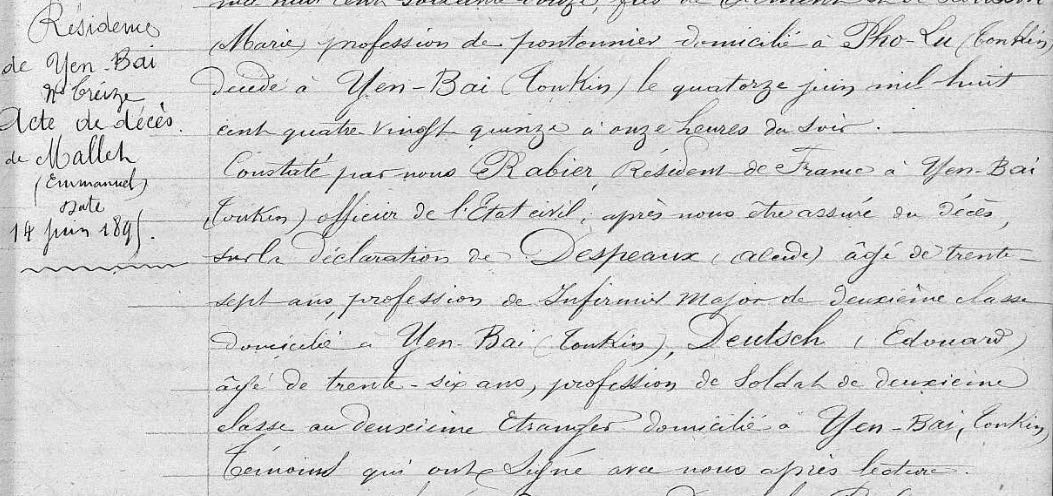 Résidence
de Yen-Bai
No treize
Acte de décès
de Mallet
(Emmanuel)
Date
14 juin 1895.
mil huit cent soixante onze, fils de Clément et de
(Marie) profession de pontonnier domicilié à Pho-Lu (Tonkin)
décédé à Yen-Bai (Tonkin) le quatorze juin mil huit
cent quatre vingt quinze à onze heures du soir.
Constaté par nous Rabier, Résident de France à Yen-Bai
(Tonkin) officier de l'Etat civil, après nous être assuré du décès,
sur la déclaration de Despeaux (Alcide) âgé de trente-
sept ans, profession de Infirmier Major de deuxième classe
domicilié à Yen-Bai (Tonkin), Deutsch (Edouard)
âgé de trente-six ans, profession de Soldat de deuxième
classe au deuxième Etranger domicilié à Yen-Bai, Tonkin,
témoins qui ont signé avec nous après lecture.